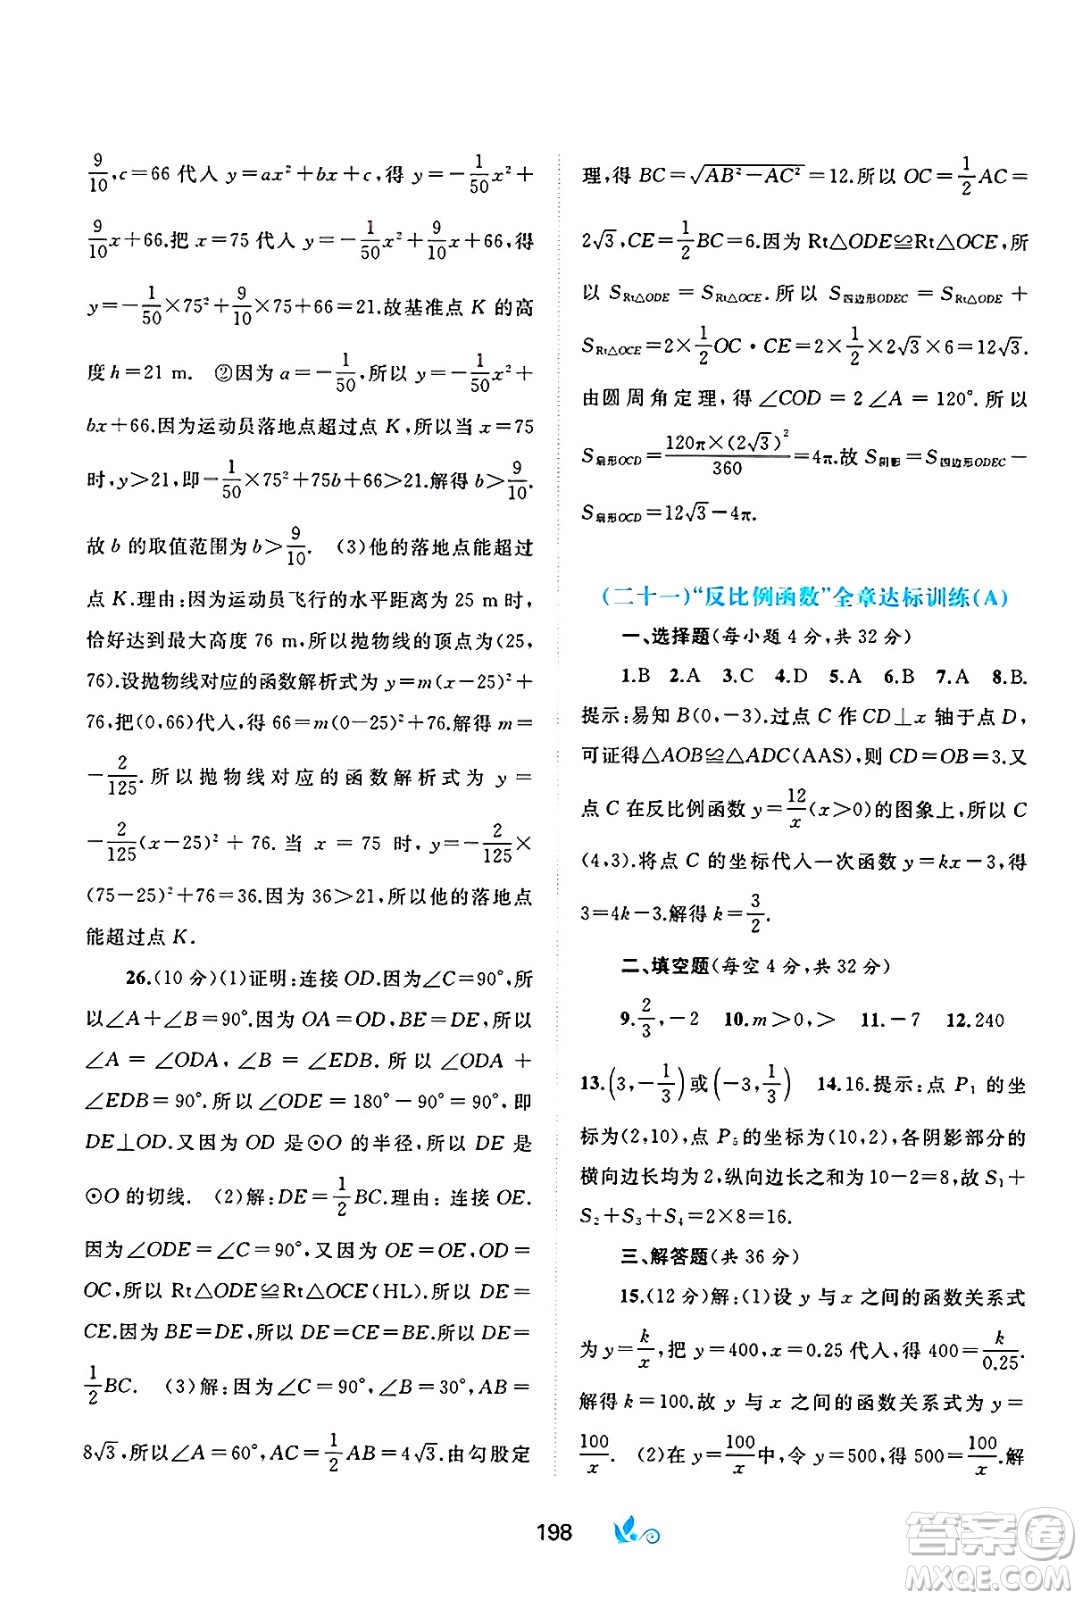 9/10,c=66 代入 y=ax²+bx+c,得 y=−1/50x²+
9/10x+66.把 x=75 代入 y=−1/50x²+9/10x+66,得
y=−1/50×75²+9/10×75+66=21.故基准点 K 的高
度 h=21 m. ②因为 a=−1/50,所以 y=−1/50x²+
bx+66.因为运动员落地点超过点 K,所以当 x=75
时,y>21,即−1/50×75²+75b+66>21.解得 b>9/10.
故 b 的取值范围为 b>9/10. (3)他的落地点能超过
点 K.理由:因为运动员飞行的水平距离为 25 m 时,
恰好达到最大高度 76 m,所以抛物线的顶点为(25,
76).设抛物线对应的函数解析式为 y=m(x−25)²+
76,把(0,66)代入,得 66=m(0−25)²+76.解得 m=
−2/125.所以抛物线对应的函数解析式为 y=
−2/125(x−25)²+76.当 x=75 时,y=−2/125×
(75−25)²+76=36.因为 36>21,所以他的落地点
能超过点 K.
26.(10 分)(1)证明:连接 OD.因为∠C=90°,所
以∠A+∠B=90°.因为 OA=OD,BE=DE,所以
∠A=∠ODA,∠B=∠EDB.所以∠ODA+
∠EDB=90°.所以∠ODE=180°−90°=90°,即
DE⊥OD.又因为 OD 是⊙O 的半径,所以 DE 是
⊙O 的切线. (2)解:DE=1/2BC.理由:连接 OE.
因为∠ODE=∠C=90°,又因为 OE=OE,OD=
OC,所以 Rt△ODE≌Rt△OCE(HL).所以 DE=
CE.因为 BE=DE,所以 DE=CE=BE.所以 DE=
1/2BC. (3)解:因为∠C=90°,∠B=30°,AB=
8√3,所以∠A=60°,AC=1/2AB=4√3.由勾股定
理,得 BC=√(AB²−AC²)=12.所以 OC=1/2AC=
2√3,CE=1/2BC=6.因为 Rt△ODE≌Rt△OCE,所
以 S Rt△ODE=S Rt△OCE.所以 S四边形ODEC=S Rt△ODE+
S Rt△OCE=2×1/2OC·CE=2×1/2×2√3×6=12√3.
由圆周角定理,得∠COD=2∠A=120°.所以
S扇形OCD=120π×(2√3)²/360=4π.故 S阴影=S四边形ODEC−
S扇形OCD=12√3−4π.
(二十一)“反比例函数”全章达标训练(A)
一、选择题(每小题 4 分,共 32 分)
1.B 2.A 3.C 4.D 5.A 6.B 7.A 8.B.
提示:易知 B(0,−3).过点 C 作 CD⊥x 轴于点 D,
可证得△AOB≌△ADC(AAS),则 CD=OB=3.又
点 C 在反比例函数 y=12/x(x>0)的图象上,所以 C
(4,3).将点 C 的坐标代入一次函数 y=kx−3,得
3=4k−3.解得 k=3/2.
二、填空题(每空 4 分,共 32 分)
9.2/3,−2 10.m>0,> 11.−7 12.240
13.(3,−1/3)或(−3,1/3) 14.16.提示:点 P₁ 的坐
标为(2,10),点 P₅的坐标为(10,2),各阴影部分的
横向边长均为 2,纵向边长之和为 10−2=8,故 S₁+
S₂+S₃+S₄=2×8=16.
三、解答题(共 36 分)
15.(12 分)解:(1)设 y 与 x 之间的函数关系式
为 y=k/x,把 y=400,x=0.25 代入,得 400=k/0.25.
解得 k=100.故 y 与 x 之间的函数关系式为 y=
100/x. (2)在 y=100/x中,令 y=500,得 500=100/x.解
198
答案圈
MXQE.COM